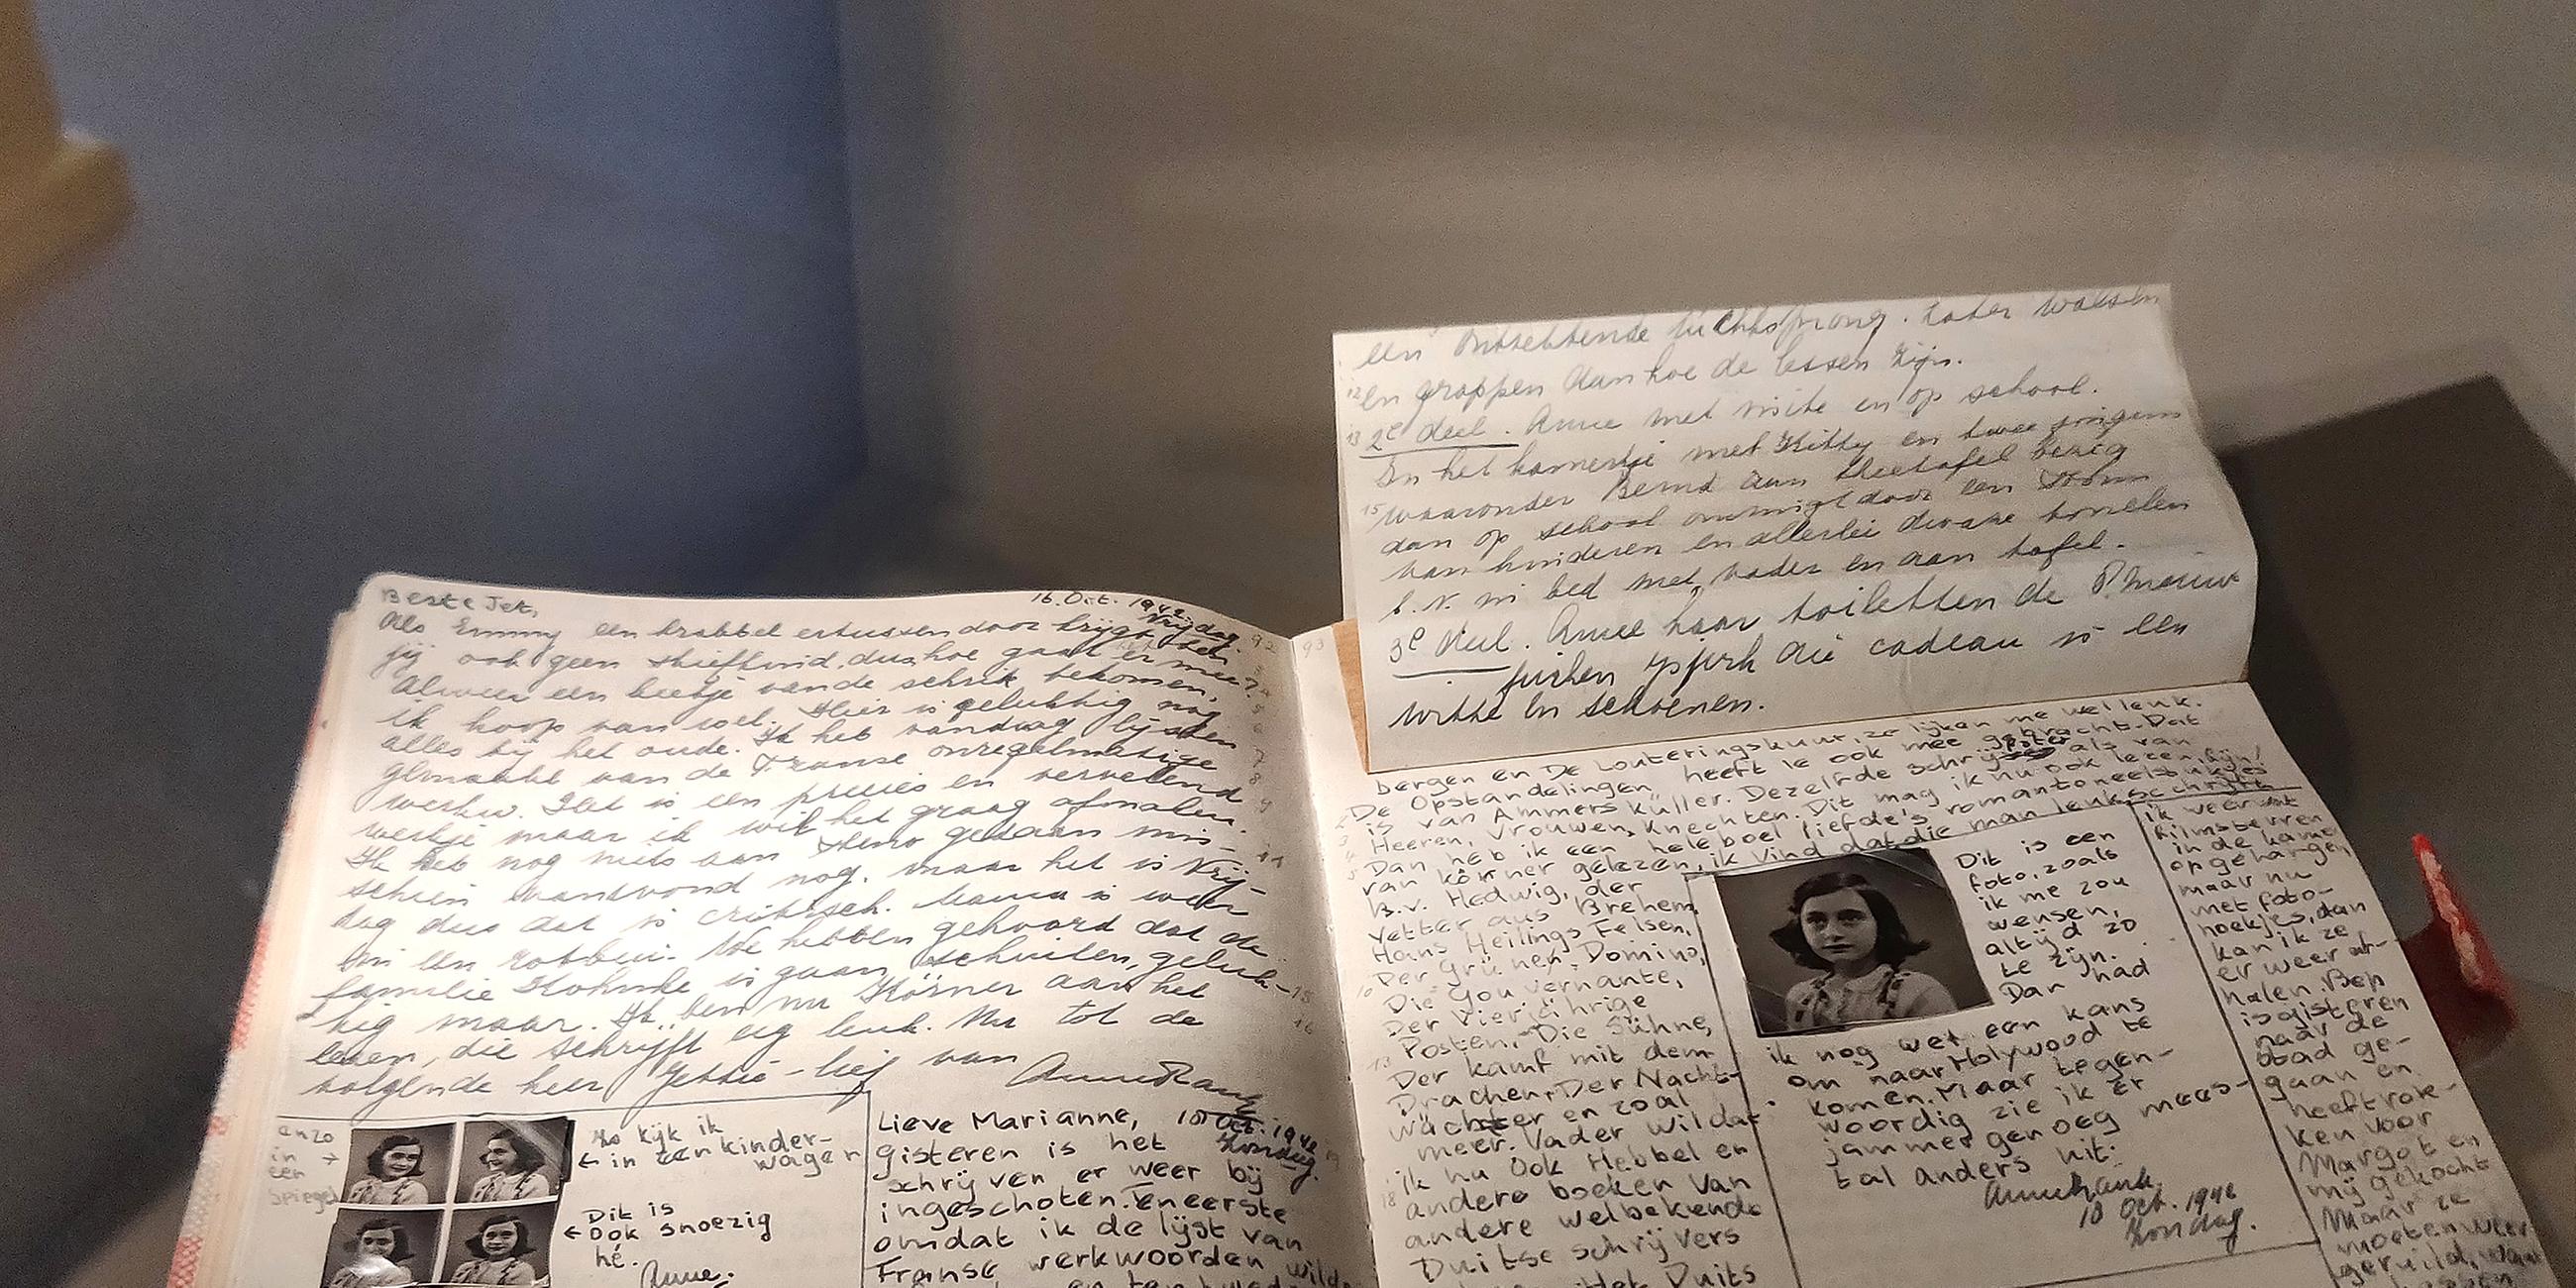 Beste Jet, 16. Oct. 1942
Vrijdag.
Als Emmy een krabbel ertussen door krijgt ben
jij ook geen stiefkind, dus hoe gaat er mee?
Alweer een beetje van de schrik bekomen,
ik hoop van wel. Hier is gelukkig nog
alles bij het oude. Ik heb vandaag lijsten
gemaakt van de Franse onregelmatige
werkw. Het is een precies en vervelend
werkje maar ik wil het graag afmaken.
Ik heb nog niets aan Steno gedaan mis-
schien vanavond nog. maar het is Vrij-
dag dus dat is critisch. Mama is weer
in een rotbui. We hebben gehoord dat de
familie is gaan schuilen, geluk-
kig maar. Ik ben nu Körner aan het
lezen, die schrijft erg leuk. Nu tot de
volgende keer Jettie-lief van
Anne Frank
enzo
in →
een
spiegel
Zo kijk ik
← in een kinder-
wagen
Dit is
← Ook snoezig
hé.
Anne.
Lieve Marianne, 18 Oct. 1942
Zondag.
gisteren is het
schrijven er weer bij
ingeschoten. Ten eerste
omdat ik de lijst van
Franse werkwoorden wilde
92
93
een ontzettende luchtsprong. Later walsen
en grappen aan hoe de lessen zijn.
2e deel. Anne met visite en op school.
In het kamertje met Kitty en twee jongens
waaronder Bernd aan theetafel bezig
dan op school omringt door een drom
van kinderen en allerlei dwaze tonelen
b.v. in bed met vader en aan tafel.
3e deel. Anne haar toiletten de
ysjurk die cadeau is een
witte en schoenen.
bergen en De Louteringskuur, ze lijken me wel leuk.
De Opstandelingen, heeft ie ook mee gebracht. Dat
is van Ammers Küller. Dezelfde schrijfster als van
Heeren, Vrouwen, Knechten. Dit mag ik nu ook lezen, fijn!
Dan heb ik een heleboel liefde's romantoneelstukjes
van Körner gelezen, ik vind dat die man leuk schrijft
B.v. Hedwig, der
Vetter aus Brehem,
Hans Heilings Felsen,
Der Grünen Domino,
Die Gouvernante,
Der Vierjährige
Posten, Die Sühne,
Der kamf mit dem
Drachen, Der Nacht-
wächter en zoal
meer. Vader wil dat
ik nu ook Hebbel en
andere boeken van
andere welbekende
Duitse schrijvers
Het Duits
Dit is een
foto, zoals
ik me zou
wensen,
altijd zo
te zijn.
Dan had
ik nog wel een kans
om naar Holywood te
komen. Maar tegen-
woordig zie ik er
jammer genoeg mees-
tal anders uit.
Anne Frank.
18 Oct. 1942
Zondag.
ik weer wat
filmsterren
in de kamer
opgehangen
maar nu
met foto-
hoekjes, dan
kan ik ze
er weer af-
halen. Bep
is gisteren
naar de
stad ge-
gaan en
heeft rok-
ken voor
Margot en
mij gekocht
Maar ze
moeten weer
geruild, want